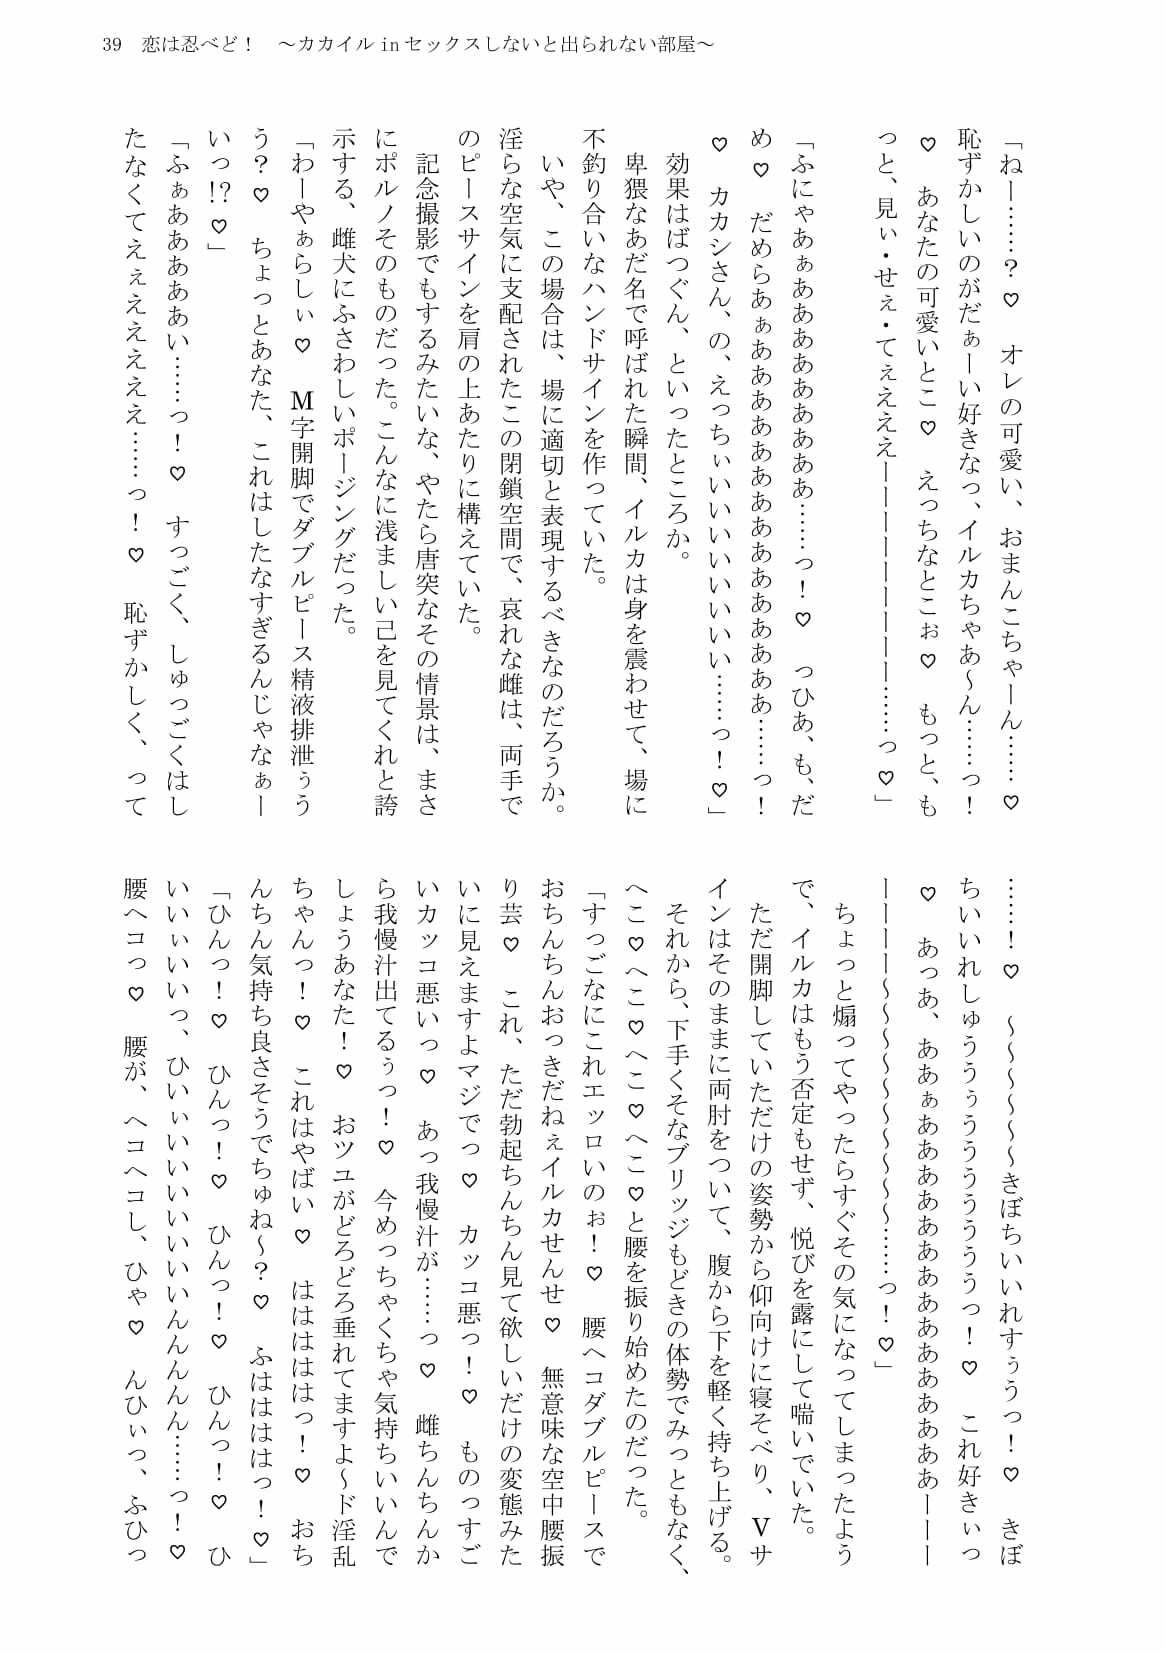 39　恋は忍べど！　～カカイル in セックスしないと出られない部屋～
「ねー……？♡　オレの可愛い、おまんこちゃーん……♡
恥ずかしいのがだぁーい好きなっ、イルカちゃあ～ん……っ！
♡　あなたの可愛いとこ♡　えっちなとこぉ♡　もっと、も
っと、見ぃ・せぇ・てぇえええーーーーーーーーー……っ♡」
「ふにゃあぁあああああああああ……っ！♡　っひあ、も、だ
め♡　だめらあぁああああああああああああああ……っ！
♡　カカシさん、の、えっちぃいいいいいいいい……っ！♡」
効果はばつぐん、といったところか。
卑猥なあだ名で呼ばれた瞬間、イルカは身を震わせて、場に
不釣り合いなハンドサインを作っていた。
いや、この場合は、場に適切と表現するべきなのだろうか。
淫らな空気に支配されたこの閉鎖空間で、哀れな雌は、両手で
のピースサインを肩の上あたりに構えていた。
記念撮影でもするみたいな、やたら唐突なその情景は、まさ
にポルノそのものだった。こんなに浅ましい己を見てくれと誇
示する、雌犬にふさわしいポージングだった。
「わーやぁらしぃ♡　M字開脚でダブルピース精液排泄ぅう
う？♡　ちょっとあなた、これはしたなすぎるんじゃなぁー
いっ!?♡」
「ふぁああああああい……っ！♡　すっごく、しゅっごくはし
たなくてえぇええええええ……っ！♡　恥ずかしく、って
……！♡　～～～～～～きぼちいいれすぅうっ！♡　きぼ
ちいいれしゅううぅううううううううっ！♡　これ好きぃっ
♡　あっあ、ああぁああああああああああああああああーーー
ーーーー～～～～～～～～～……っ！♡」
ちょっと煽ってやったらすぐその気になってしまったよう
で、イルカはもう否定もせず、悦びを露にして喘いでいた。
ただ開脚していただけの姿勢から仰向けに寝そべり、Vサ
インはそのままに両肘をついて、腹から下を軽く持ち上げる。
それから、下手くそなブリッジもどきの体勢でみっともなく、
へこ♡へこ♡へこ♡へこ♡と腰を振り始めたのだった。
「すっごなにこれエッロいのぉ！♡　腰ヘコダブルピースで
おちんちんおっきだねぇイルカせんせ♡　無意味な空中腰振
り芸♡　これ、ただ勃起ちんちん見て欲しいだけの変態みた
いに見えますよマジでっ♡　カッコ悪っ！♡　ものっすご
いカッコ悪いっ♡　あっ我慢汁が……っ♡　雌ちんちんか
ら我慢汁出てるぅっ！♡　今めっちゃくちゃ気持ちいいんで
しょうあなた！♡　おツユがどろどろ垂れてますよ～ド淫乱
ちゃんっ！♡　これはやばい♡　ははははっ！♡　おち
んちん気持ち良さそうでちゅね～？♡　ふはははっ！♡」
「ひんっ！♡　ひんっ！♡　ひんっ！♡　ひんっ！♡　ひ
いいぃいいっ、ひいぃいいいいいいいんんんんん……っ！♡
腰ヘコっ♡　腰が、ヘコヘコし、ひゃ♡　んひぃっ、ふひっ